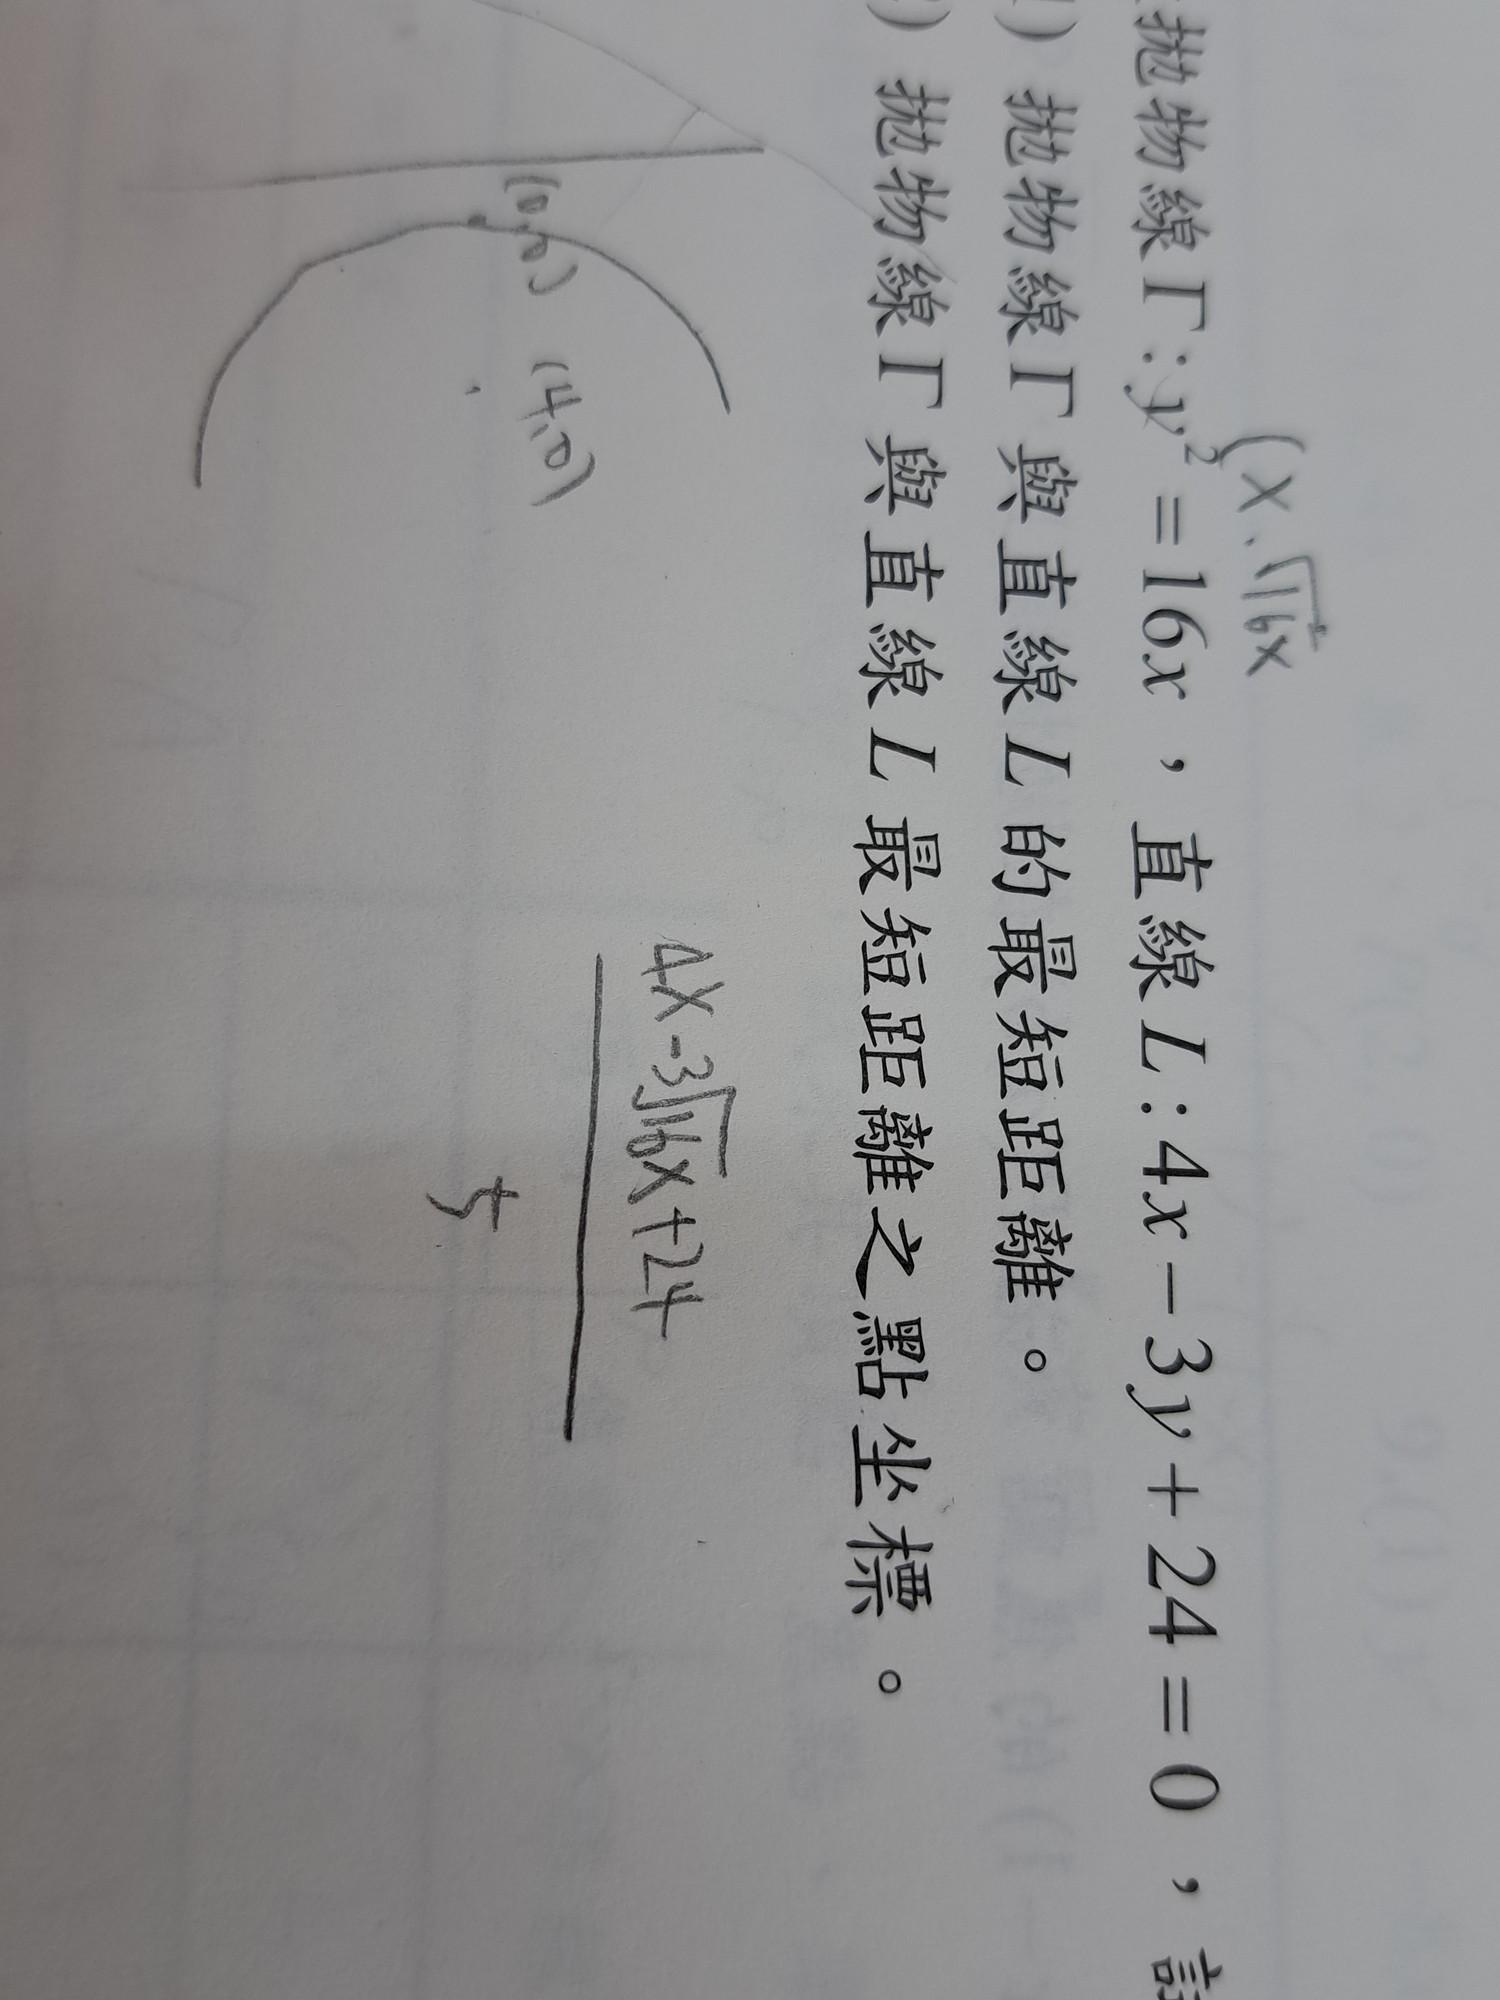 (x, √16x)
拋物線Γ:y²=16x,直線L:4x-3y+24=0,
) 拋物線Γ與直線L的最短距離。
) 拋物線Γ與直線L最短距離之點坐標。
4x-3√16x+24
5
(0,0)
(4,0)